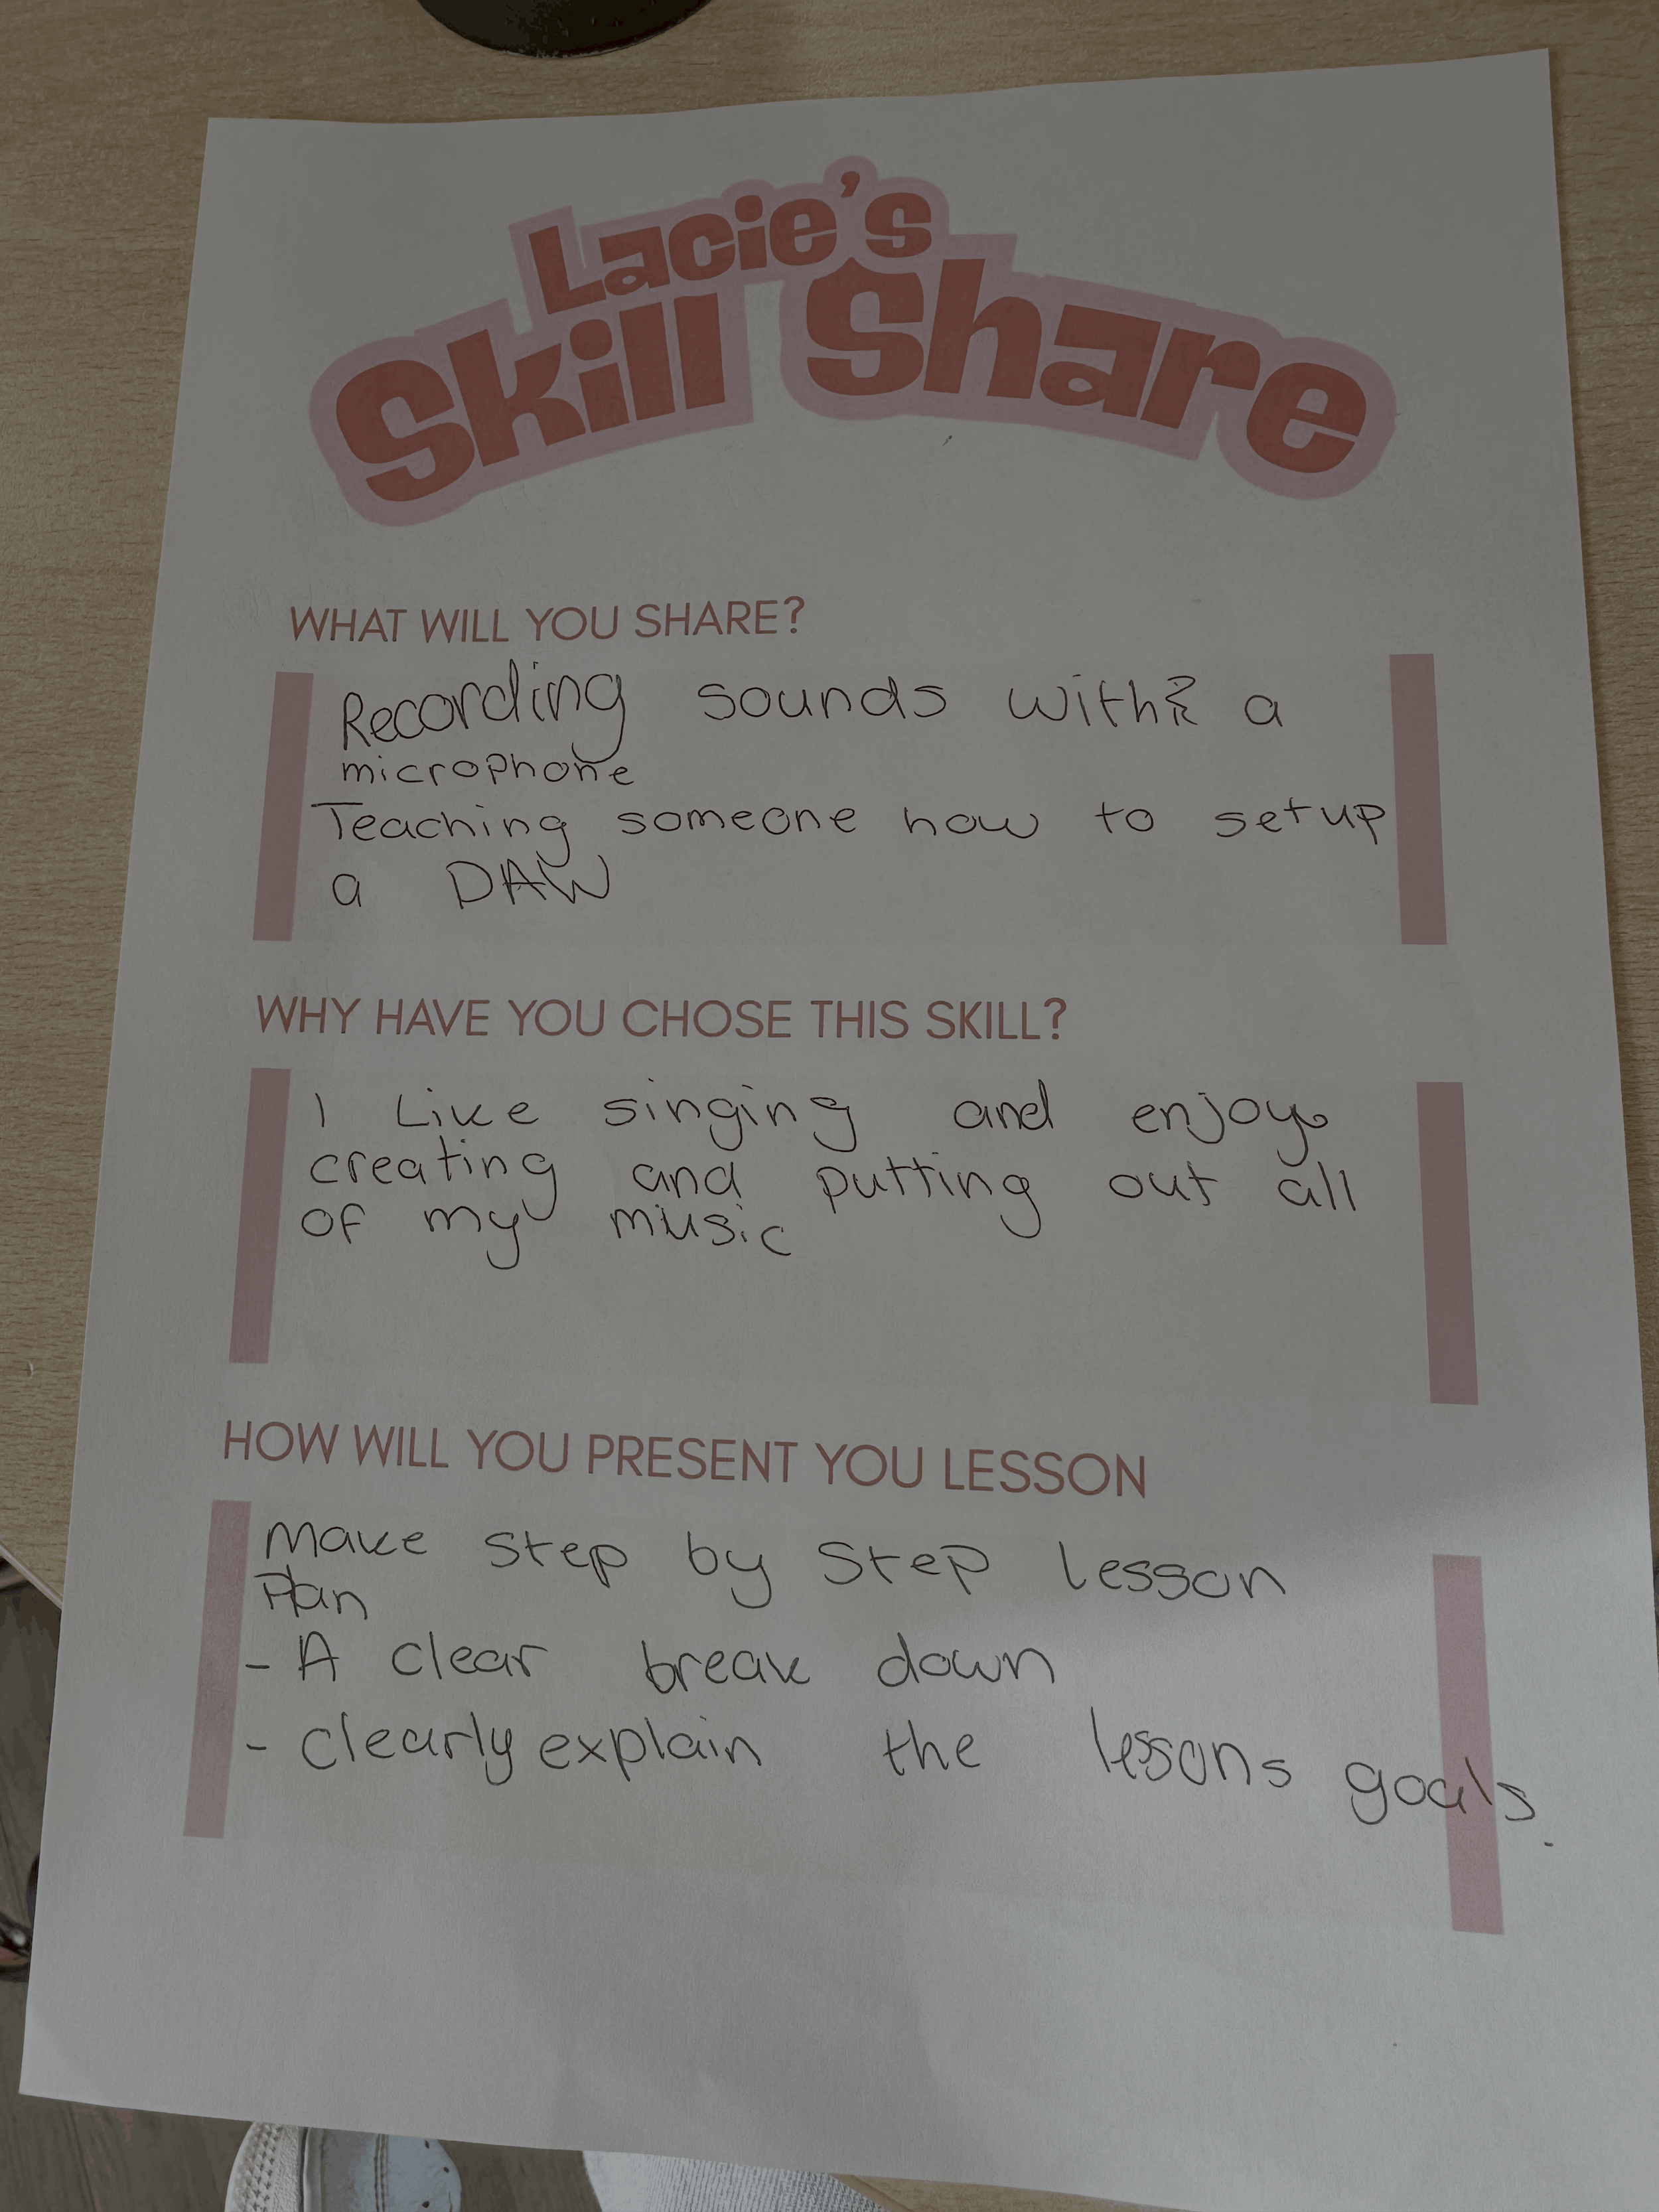 Lacie's
Skill Share
WHAT WILL YOU SHARE?
Recording sounds with a
microphone
Teaching someone how to setup
a DAW
WHY HAVE YOU CHOSE THIS SKILL?
I Like singing and enjoy
creating and putting out all
of my music
HOW WILL YOU PRESENT YOU LESSON
Make step by step lesson
Plan
- A clear break down
- clearly explain the lessons goals.